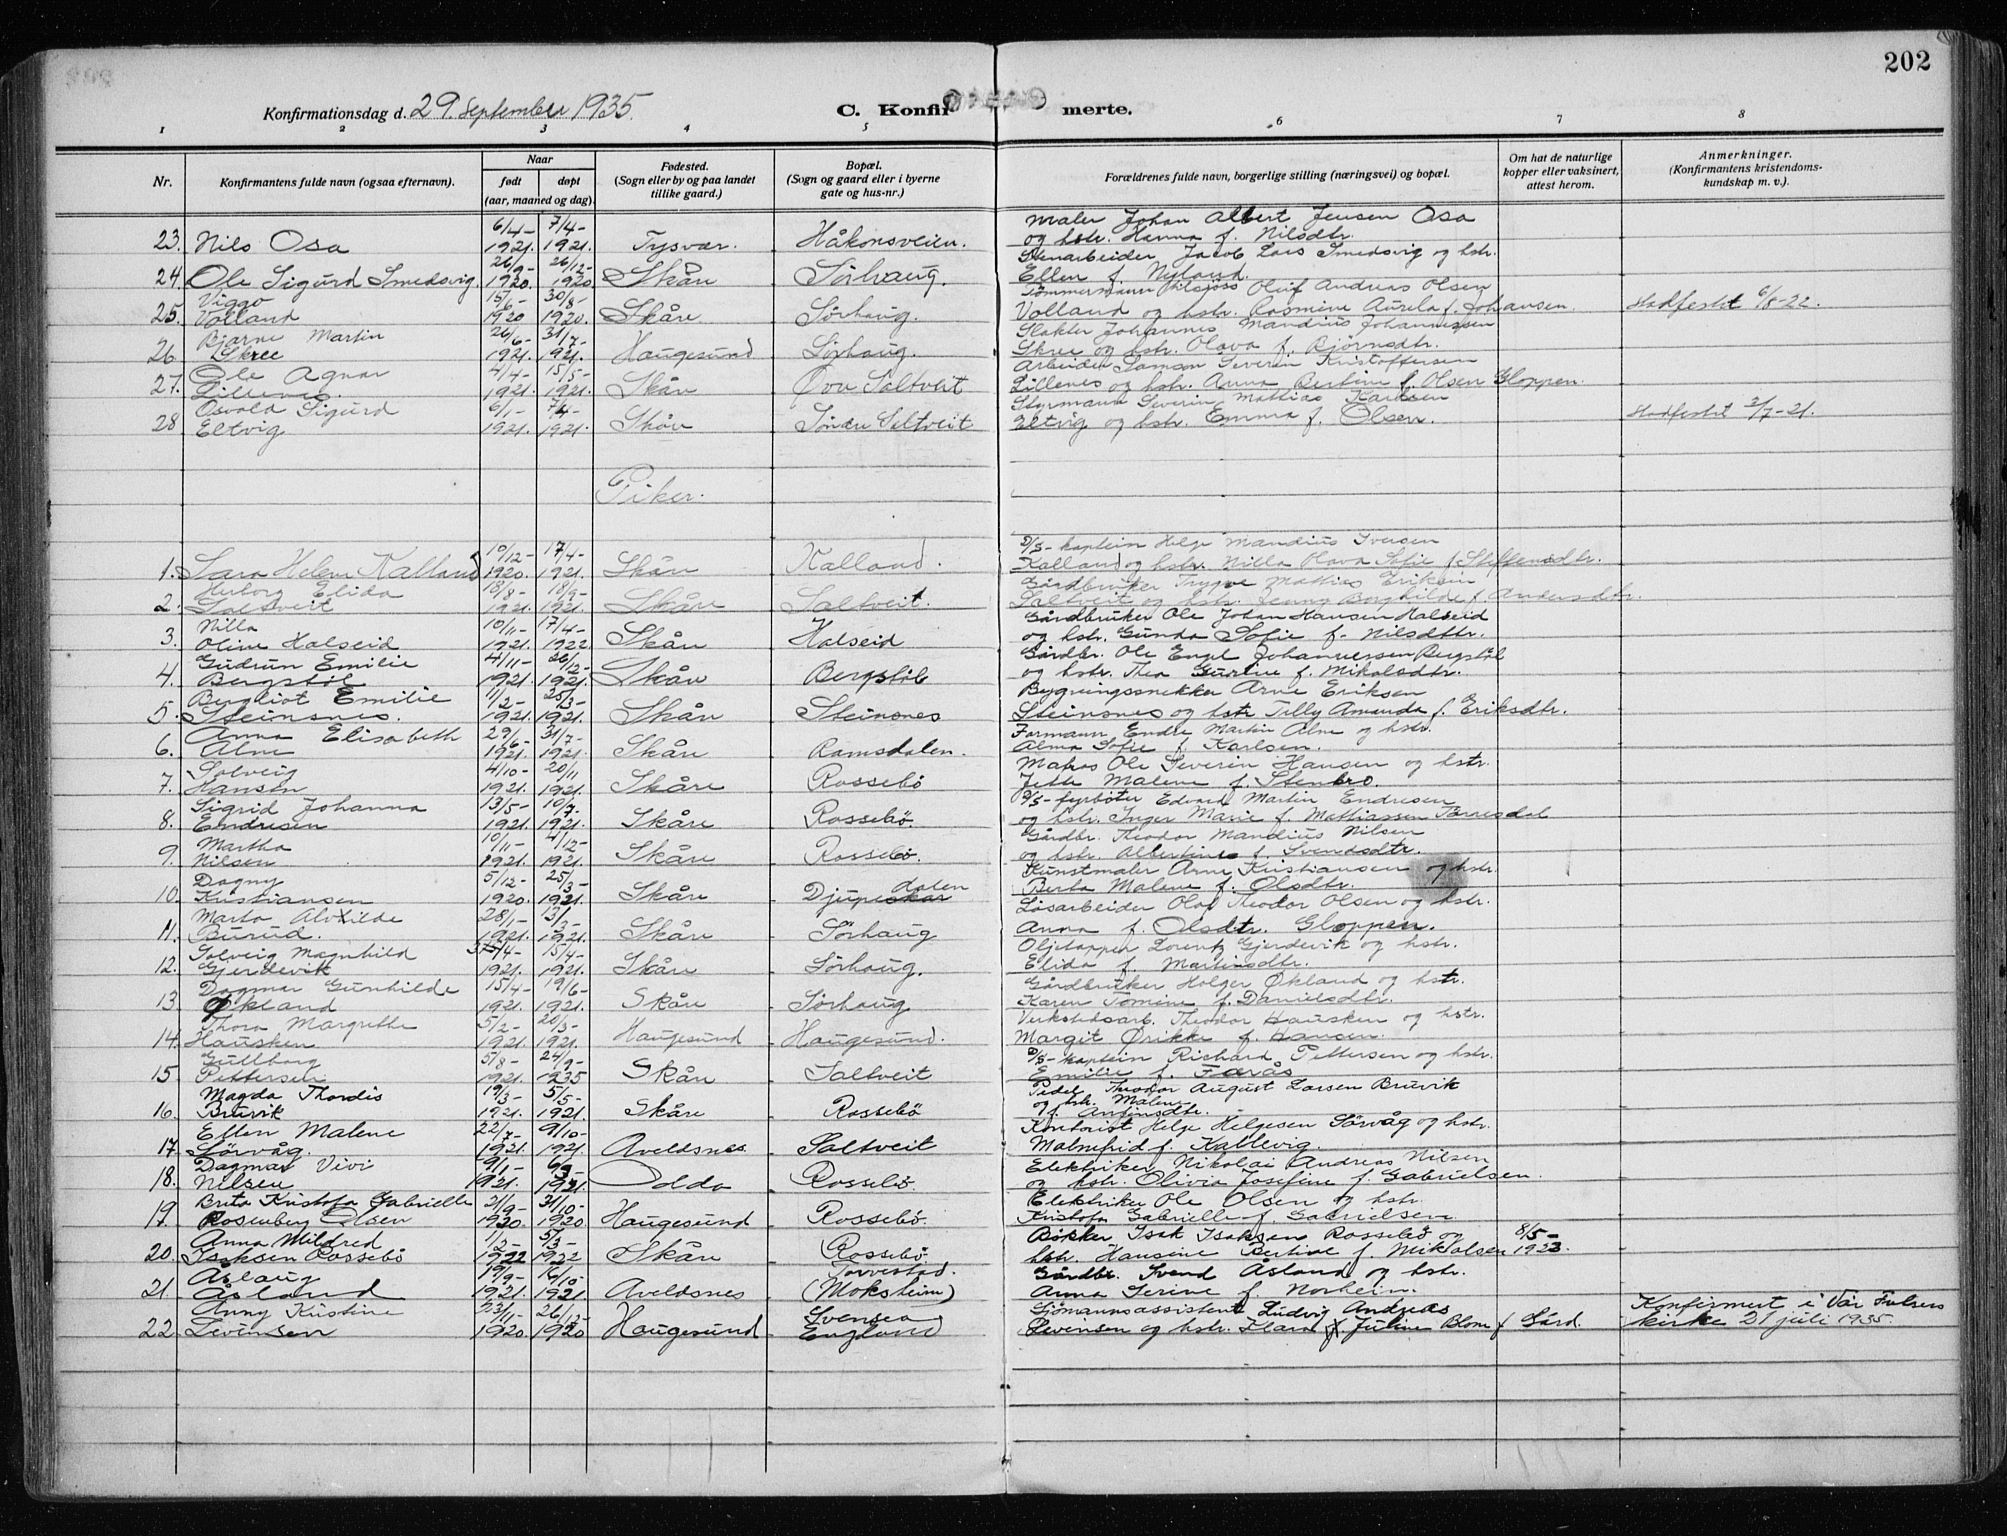 202
Konfirmationsdag d. 29. September 1935.
C. Konfirmerte.
1 2 3 4 5 6 7 8
Nr.
Konfirmantens fulde navn (ogsaa efternavn).
Naar
født døpt
(aar, maaned og dag).
Fødested.
(Sogn eller by og paa landet
tillike gaard.)
Bopæl.
(Sogn og gaard eller i byerne
gate og hus-nr.)
Forældrenes fulde navn, borgerlige stilling (næringsvei) og bopæl.
Om hat de naturlige
kopper eller vaksinert,
attest herom.
Anmerkninger.
(Konfirmantens kristendoms-
kundskap m. v.).
6/4- 7/4- Maler Johan Albert Jensen Osa
23. Nils Osa 1921. 1921. Tysvær. Håkonsveien. og hstr. Hanna f. Nilsdtr.
26/9- 26/12- Stenarbeider Jacob Lars Smedsvig og hstr.
24. Ole Sigurd Smedsvig 1920. 1920 Skåre Sørhaug. Ellen f. Nyland.
Viggo 15/6- 30/8- Tømmermann Olaf Andreas Olsen
25. Volland 1920 1920. Skåre Sørhaug. Volland og hstr. Rasmine Aurela f. Johansen. Stadfestet 6/8-22.
Bjarne Martin 26/6- 31/7- Slakter Johannes Mandius Johannessen
26. Skree 1921. 1921. Haugesund Sørhaug. Skree og hstr. Olava f. Bjørnsdtr.
Ole Agnar 4/4- 15/5- Arbeider Samson Severin Kristoffersen
27. Lillenes 1921. 1921. Skåre Øvre Saltveit Lillenes og hstr. Anna Bertine f. Olsen Gloppen.
Osvald Sigurd 6/1- 7/4- Styrmann Severin Mattias Karlsen
28 Eltvig 1921. 1921. Skåre Søndre Saltveit Eltvig og hstr. Emma f. Olsen. Stadfestet 2/7-21.
Piker.
10/12- 17/4- D/S-kaptein Helge Mandius Iversen
1. Sara Helene Kalland 1920. 1921. Skåre Kalland. Kalland og hstr. Nilla Olava Sofie f. Steffensdtr.
Herborg Elida 18/8- 18/9- Gårdbruker Trygve Mattias Eriksen
2. Saltveit 1921. 1921. Skåre Saltveit. Saltveit og hstr. Jenny Borghilde f. Andersdtr.
Nilla 10/11- 17/4- Gårdbruker Ole Johan Hansen Halseid
3. Oline Halseid 1921. 1922. Skåre Halseid og hstr. Gunda Sofie f. Nilsdtr.
Gudrun Emilie 4/11- 26/12- Gårdbr. Ole Engel Johannessen Bergstøl
4. Bergstøl 1921. 1921. Skåre Bergstøl og hstr. Thea Gurine f. Mikalsdtr.
Bergliot Emilie 11/2- 25/3- Bygningssnekker Arne Eriksen
5. Steinsnes. 1921. 1921. Skåre Steinsnes Steinsnes og hstr Tilly Amanda f. Eriksdtr.
Anna Elisabeth 29/6- 31/7- Formann Endre Martin Alne og hstr.
6. Alne 1921. 1921. Skåre Ramsdalen. Alma Sofie f. Karlsen.
Solveig 4/10- 20/11 Matros Ole Severin Hansen og hstr.
7. Hansen 1921. 1921. Skåre Rossebø Jette Malene f. Stenbro.
Sigrid Johanna 13/5- 10/7- D/S-fyrbøter Edvard Martin Endresen
8. Endresen 1921. 1921. Skåre Rossebø. og hstr. Inger Marie f. Mathiassen Tørresdal
Martha 10/11- 4/12- Gårdbr. Theodor Mandius Nilsen
9. Nilsen 1921. 1921. Skåre Rossebø. og hstr. Albertine f. Svendsdtr.
Dagny 5/12- 25/3- Kunstmaler Arne Kristiansen og hstr.
10. Kristiansen 1920. 1921. Skåre Djupeskar dalen Berta Malene f. Olsdtr.
Marta Alvhilde 28/1- 13/3- Løsarbeider Olaf Theodor Olsen og hstr.
11. Burud. 1921. 1921. Skåre Sørhaug Anna f. Olsdtr. Gloppen.
Solveig Magnhild /4- 15/4- Oljetapper Lorentz Gjerdevik og hstr.
12. Gjerdevik 1921. 1921. Skåre Sørhaug. Elida f. Martinsdtr.
Dagmar Gunhilde 15/4- 19/6- Gårdbruker Holger Økland og hstr.
13. Økland 1921. 1921. Skåre Sørhaug Karen Tomine f. Danielsdtr.
Thora Margrethe 5/2- 20/3- Verkstedsarb. Theodor Hausken og hstr.
14. Hausken 1921. 1921. Haugesund Haugesund. Margit Ørikke f. Hansen.
Gullborg 5/8- 24/9- D/S-kaptein Richard Pettersen og hstr.
15. Pettersen 1921. 1935 Skåre Saltveit Emilie f. Færås
Magda Thordis 19/3- 5/5- Pedel Theodor August Larsen Bruvik
og hstr. Malene
16. Bruvik 1921. 1921. Skåre Rossebø f. Anfinsdtr.
Ellen Malene 22/7- 9/10- Kontorist Helge Helgesen Sørvåg og hstr.
17. Sørvåg. 1921. 1921. Avaldsnes Saltveit Malmfrid f. Kallevig.
Dagmar Vivi 9/1- 6/3- Elektriker Nikolai Andreas Nilsen
18. Nilsen 1921. 1921. Odda Rossebø og hstr. Olivia Josefine f. Gabrielsen.
Brita Kristofa Gabrielle 21/9- 31/10- Elektriker Ole Olsen og hstr.
19. Rosenberg Olsen 1920. 1920 Haugesund Rossebø. Kristofa Gabrielle f. Gabrielsen
Anna Mildred 1/2- 5/3- Bøkker Isak Isaksen Rossebø og 8/5-
20. Isaksen Rossebø 1922 1922 Skåre Rossebø hstr. Hansine Bertine f. Mikkalsen 1923.
Åslaug 19/9- 16/10- Torvestad. Gårdbr. Svend Åsland og hstr.
21. Åsland 1921. 1921 Avaldsnes (Moksheim) Anna Serine f. Norheim.
Anny Kristine 23/11- 26/12- Svensea Sjømannsassistent Ludvig Andreas Konfirmert i Vår Frelsers
22. Levinsen 1920 1920 Haugesund England Levinsen og hstr. Klara Juline Blom f. Gård. kirke 21 juli 1935.